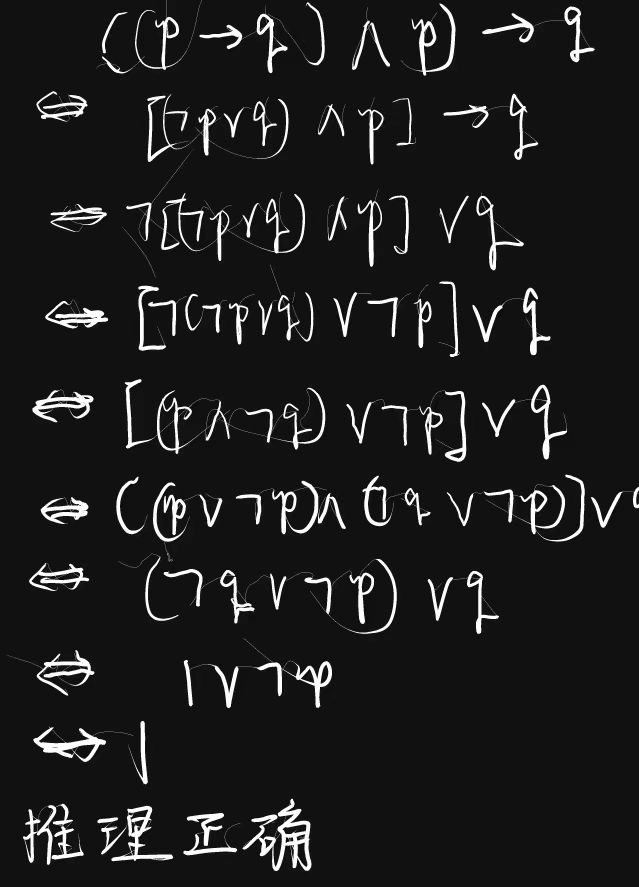 ((p → q) ∧ p) → q
⇔ [(¬p∨q) ∧p] → q
⇔ ¬[(¬p∨q) ∧p] ∨ q
⇔ [¬(¬p∨q) ∨¬p] ∨ q
⇔ [(p∧¬q) ∨¬p] ∨ q
⇔ ((p∨¬p)∧(¬q ∨¬p)]∨q
⇔ (¬q∨¬p) ∨q
⇔ 1∨¬p
⇔ 1
推理正确